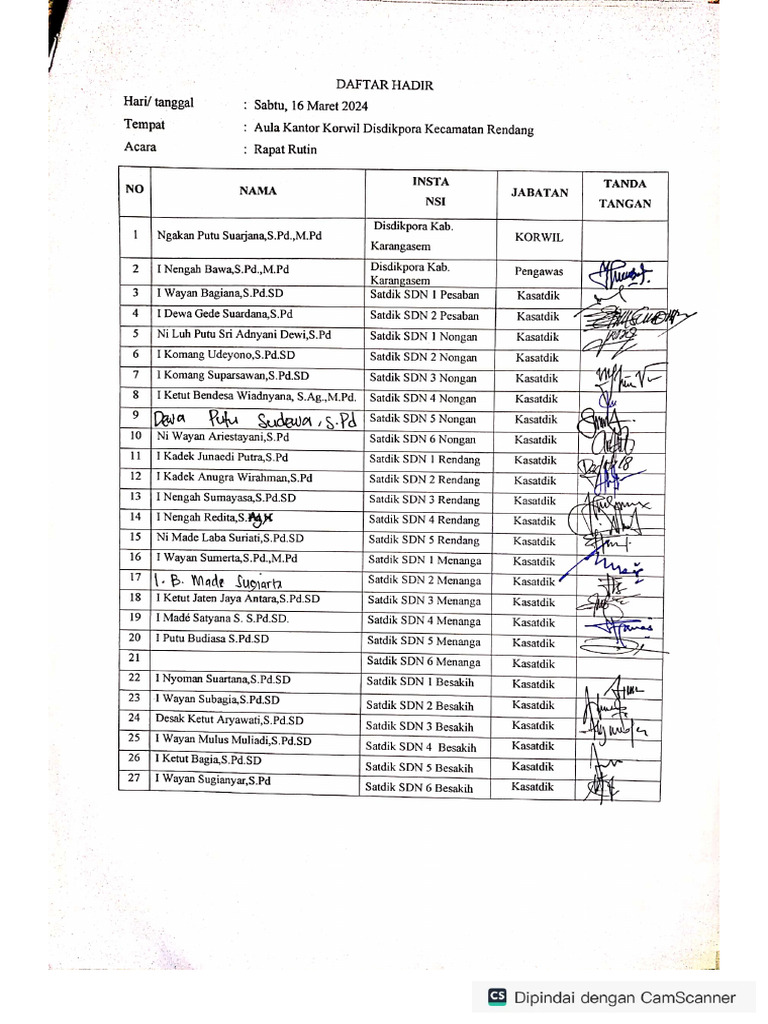 DAFTAR HADIR
Hari/ tanggal : Sabtu, 16 Maret 2024
Tempat : Aula Kantor Korwil Disdikpora Kecamatan Rendang
Acara : Rapat Rutin
NO NAMA INSTANSI JABATAN TANDA TANGAN
1 Ngakan Putu Suarjana,S.Pd.,M.Pd Disdikpora Kab. Karangasem KORWIL
2 I Nengah Bawa,S.Pd.,M.Pd Disdikpora Kab. Karangasem Pengawas
3 I Wayan Bagiana,S.Pd.SD Satdik SDN 1 Pesaban Kasatdik
4 I Dewa Gede Suardana,S.Pd Satdik SDN 2 Pesaban Kasatdik
5 Ni Luh Putu Sri Adnyani Dewi,S.Pd Satdik SDN 1 Nongan Kasatdik
6 I Komang Udeyono,S.Pd.SD Satdik SDN 2 Nongan Kasatdik
7 I Komang Suparsawan,S.Pd.SD Satdik SDN 3 Nongan Kasatdik
8 I Ketut Bendesa Wiadnyana, S.Ag.,M.Pd. Satdik SDN 4 Nongan Kasatdik
9 Dewa Putu Sudewa, S.Pd Satdik SDN 5 Nongan Kasatdik
10 Ni Wayan Ariestayani,S.Pd Satdik SDN 6 Nongan Kasatdik
11 I Kadek Junaedi Putra,S.Pd Satdik SDN 1 Rendang Kasatdik
12 I Kadek Anugra Wirahman,S.Pd Satdik SDN 2 Rendang Kasatdik
13 I Nengah Sumayasa,S.Pd.SD Satdik SDN 3 Rendang Kasatdik
14 I Nengah Redita,S. Satdik SDN 4 Rendang Kasatdik
15 Ni Made Laba Suriati,S.Pd.SD Satdik SDN 5 Rendang Kasatdik
16 I Wayan Sumerta,S.Pd.,M.Pd Satdik SDN 1 Menanga Kasatdik
17 I. B. Made Sugiarta Satdik SDN 2 Menanga Kasatdik
18 I Ketut Jaten Jaya Antara,S.Pd.SD Satdik SDN 3 Menanga Kasatdik
19 I Madé Satyana S. S.Pd.SD. Satdik SDN 4 Menanga Kasatdik
20 I Putu Budiasa S.Pd.SD Satdik SDN 5 Menanga Kasatdik
21 Satdik SDN 6 Menanga Kasatdik
22 I Nyoman Suartana,S.Pd.SD Satdik SDN 1 Besakih Kasatdik
23 I Wayan Subagia,S.Pd.SD Satdik SDN 2 Besakih Kasatdik
24 Desak Ketut Aryawati,S.Pd.SD Satdik SDN 3 Besakih Kasatdik
25 I Wayan Mulus Muliadi,S.Pd.SD Satdik SDN 4 Besakih Kasatdik
26 I Ketut Bagia,S.Pd.SD Satdik SDN 5 Besakih Kasatdik
27 I Wayan Sugianyar,S.Pd Satdik SDN 6 Besakih Kasatdik
CS Dipindai dengan CamScanner